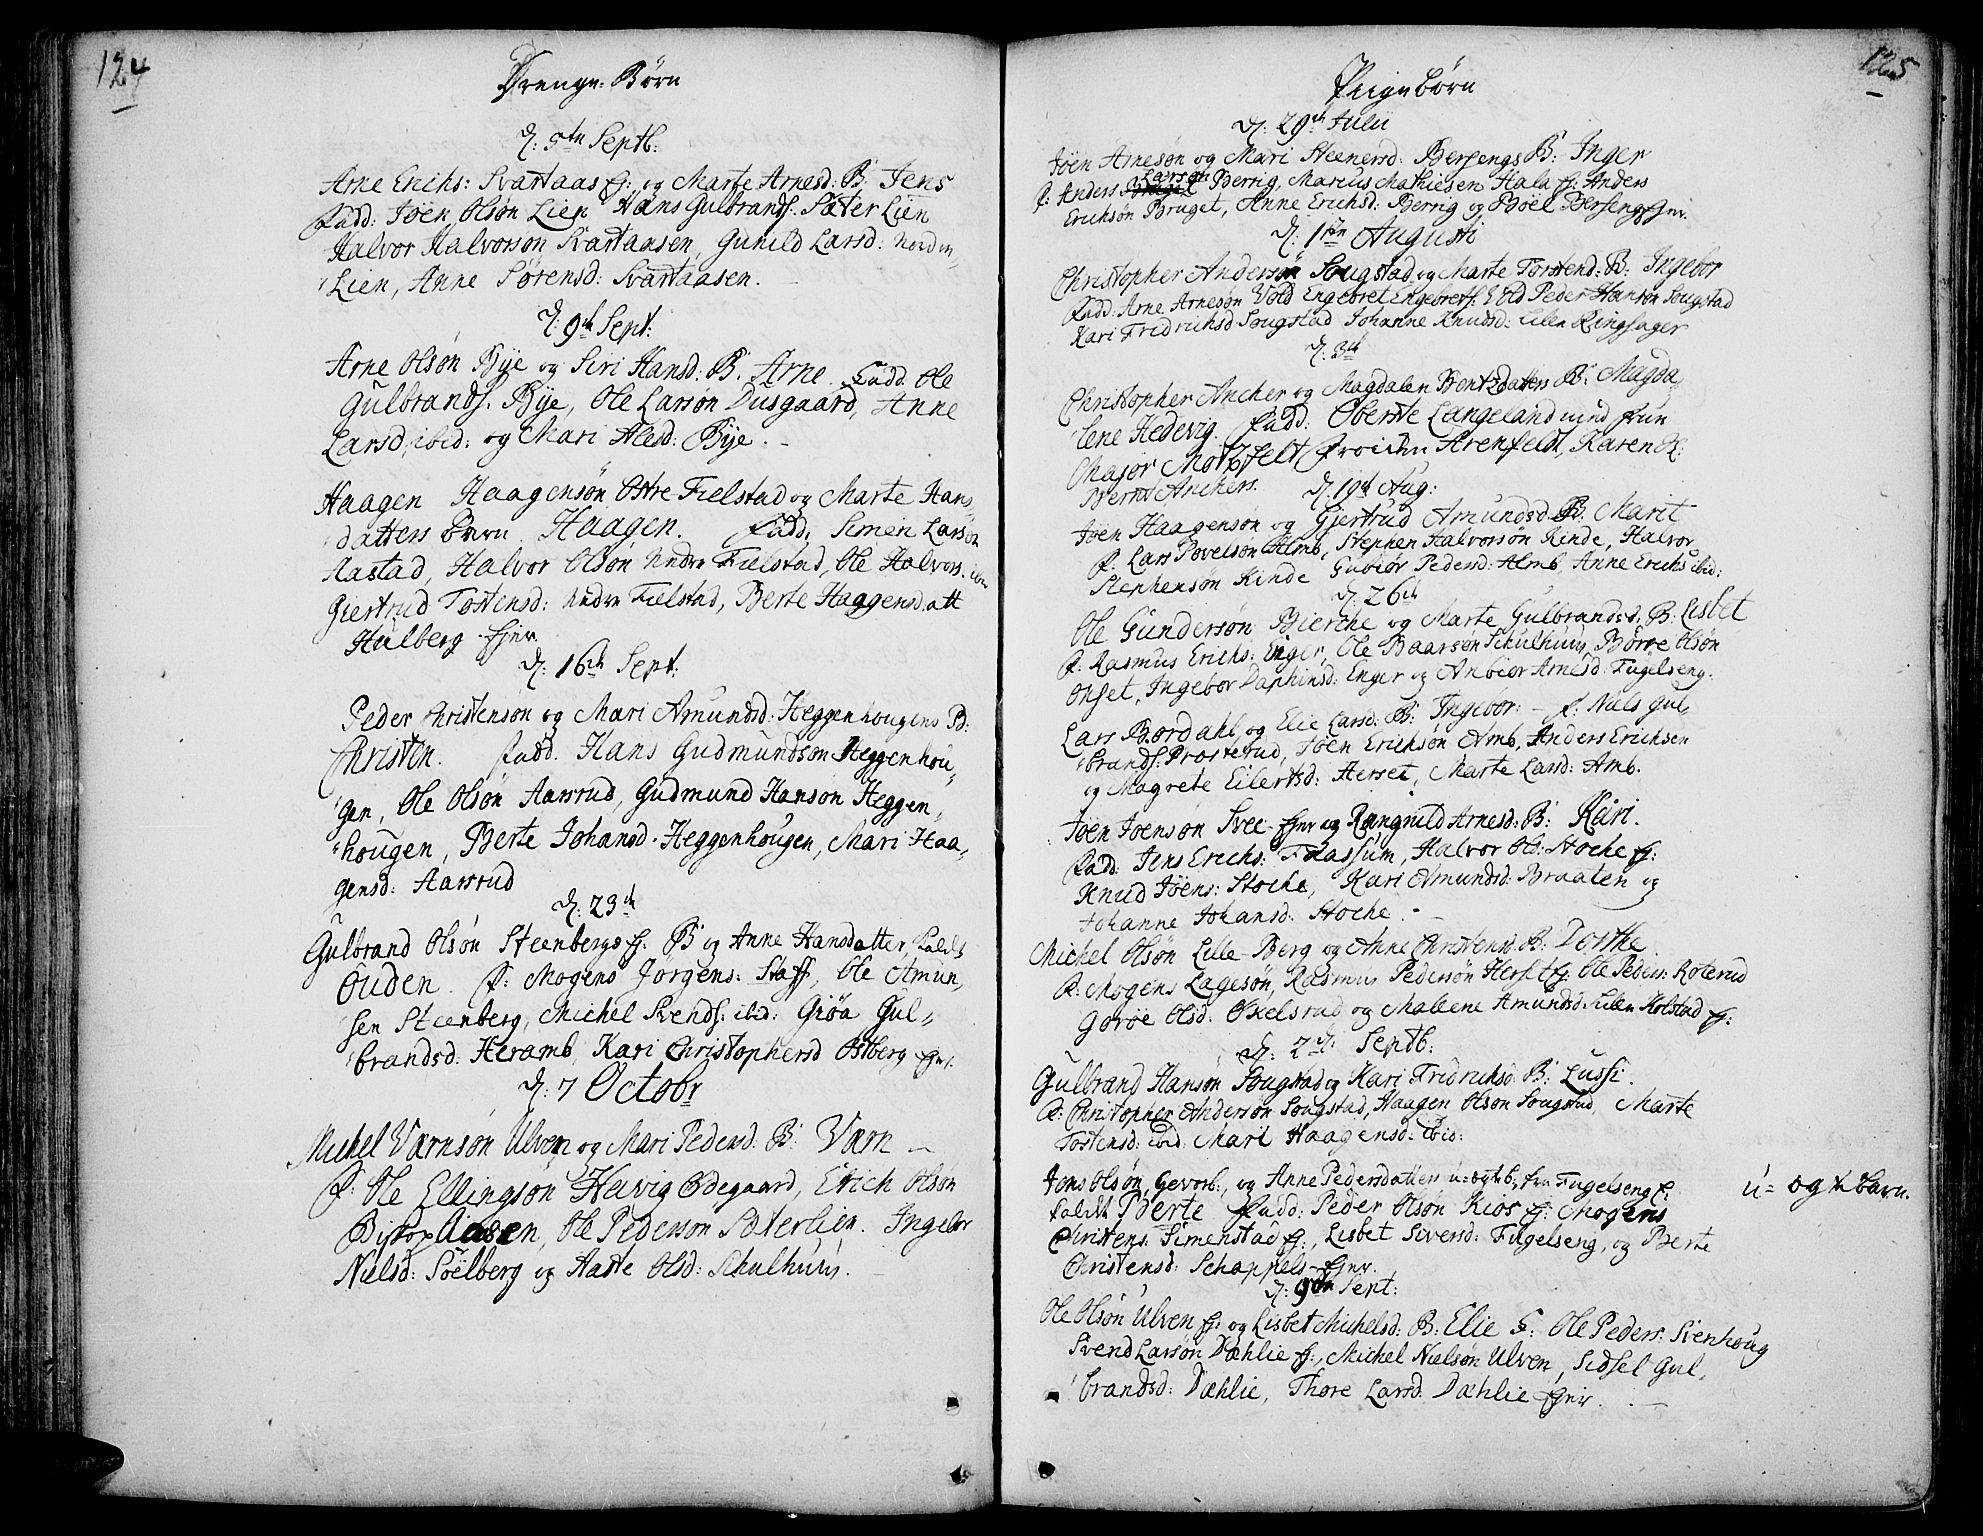 124
Drenge-Børn
d: 5te Septb:
Arne Erichs: Svartaas fj: og Marte Arnesd: B: Jens
Fadd: Joen Olsøn Lien Hans Gulbrands: Sæter Lien
Halvor Halvorsøn Svartaasen, Gunild Larsd: Norden
Lien, Anne Sørensd: Svartaasen.
d: 9de Sept:
Arne Olsøn Bye og Siri Hansd: B: Arne. Fadd: Ole
Gulbrands: Bye, Ole Larsøn Dusgaard, Anne
Larsd, ibid: og Mari Alesd: Bye.
Haagen Haagensøn Østre Fielstad og Marte Hans
datters Barn Haagen. Fadd: Simen Larsøn
Aastad, Halvor Olsøn Nedre Fielstad, Ole Halvors: ibid
Giertrud Tostensd: Nedre Fielstad, Berte Haagensdatt
Hulberg fjer.
d: 16de Sept:
Peder Christensøn og Mari Amundsd: Heggenhougens B:
Christen. Fadd. Hans Gudmundsøn Heggenhou
gen, Ole Olsøn Aasrud, Gudmund Hansøn Heggen,
hougen, Berte Johansd: Heggenhougen, Mari Haa,
gensd: Aasrud
d: 23de
Gulbrand Olsøn Steenbergs fj: B: og Anne Hansdatter, kaldt
Ouden. F: Mogens Jørgens: Staff, Ole Amun,
sen Steenberg, Michel Svends: ibid: Giøa Gul,
brandsd: Heramb, Kari Christophersd Østberg fjer.
d: 7 Octobr
Michel Værnsøn Ulven og Mari Pedersd: B: Værn
F: Ole Ellingsøn Helvig Ødegaard, Erich Olsøn
Bistop Aasen, Ole Pedersøn Sæterlien. Ingebor
Nielsd: Søelberg og Marte Olsd: Schulhuus.
125
Piigebørn
d: 29de Julii
Joen Arnesøn og Mari Steenersd: Bersengs B: Inger
F: Anders Larsøn Berrig, Marius Mathiesen Hala fj: Anders
Erichsøn Bruget, Anne Erichsd: Berrig og Boel Berseng fjer.
d: 1ste Augusti
Christopher Andersøn Sougstad og Marte Tostend: B: Ingebor
Fadd: Arne Arnesøn Vold Engebret Engebrets: Vold Peder Hansøn Sougstad
Kari Fridrichsd Sougstad Johanne Knudsd: Lilen Ringsager
d: 3de
Christopher Ancher og Magdalen Bentzdatters B: Magda,
lene Hedevig. Fadd: Oberste Langeland med frue
Major Motzfelt Frøiden Arenfeldt, Karen
Bernt Anchers.
d: 19de Aug:
Joen Haagensøn og Gjertrud Amundsd B: Marit
F: Lars Povelsøn Almb, Stephen Halvorsøn Kinde, Halvor
Stephensøn Kinde Gubiør Pedersd: Almb, Anne Erichs ibid:
d: 26de
Ole Gundersøn Bierche og Marte Gulbrandsd: B: Lisbet
F: Rasmus Erichs: Enger, Ole Baarsøn Schulhuus, Børre Olsøn
Onset, Ingebor Daphinsd: Enger og Anbiør Arnesd: Fugelseng.
Lars Bordahl og Elie Larsd: B: Ingebor: – F: Niels Gul,
brands: Prosterud, Joen Erichsøn Amb, Anders Erichsen
og Magrete Eilertsd: Herset, Marte Larsd: Amb.
Joen Joensøn Svee fjer og Rangnild Arnesd: B: Kari.
Fadd: Jens Erichs: Flassum, Halvor Ols: Stoche fj:
Knud Joens: Stoche, Kari Amundsd: Braaten og
Johanne Johansd: Stoche.
Michel Olsøn Lille Berg og Anne Christensd: B: Dorthe
F: Mogens Lagesøn, Rasmus Pedersøn Herset fj: Ole Peders: Roterud
Goroe Olsd: Oxelsrud og Malene Amundsd: Lilen Kolstad fj:
d: 2de Septb:
Gulbrand Hansøn Sougstad og Kari Fridrichsd: B: Lussi.
F: Christopher Andersøn Sougstad, Haagen Olsøn Sougstad, Marte
Tostensd: ibid: Mari Haagensd: ibid:
Jens Olsøn Gevorb:, og Anne Pedersdatters u: egte b: fra Fugelseng f:
kaldt Berte Fadd: Peder Olsøn Kios fj: Mogens
Christens: Simenstad fj:, Lisbet Siversd: Fugelseng, og Berte
Christensd: Schappels-fjer.
u- ægte barn.
d: 9de Sept:
Ole Olsøn Ulven fj: og Lisbet Michelsd: B: Elie F: Ole Peders: Svenhoug
Svend Larsøn Dæhlie fj:, Michel Nielsøn Ulven, Sidsel Gul,
brandsd: Dæhlie, Thore Larsd: Dæhlie fjer.